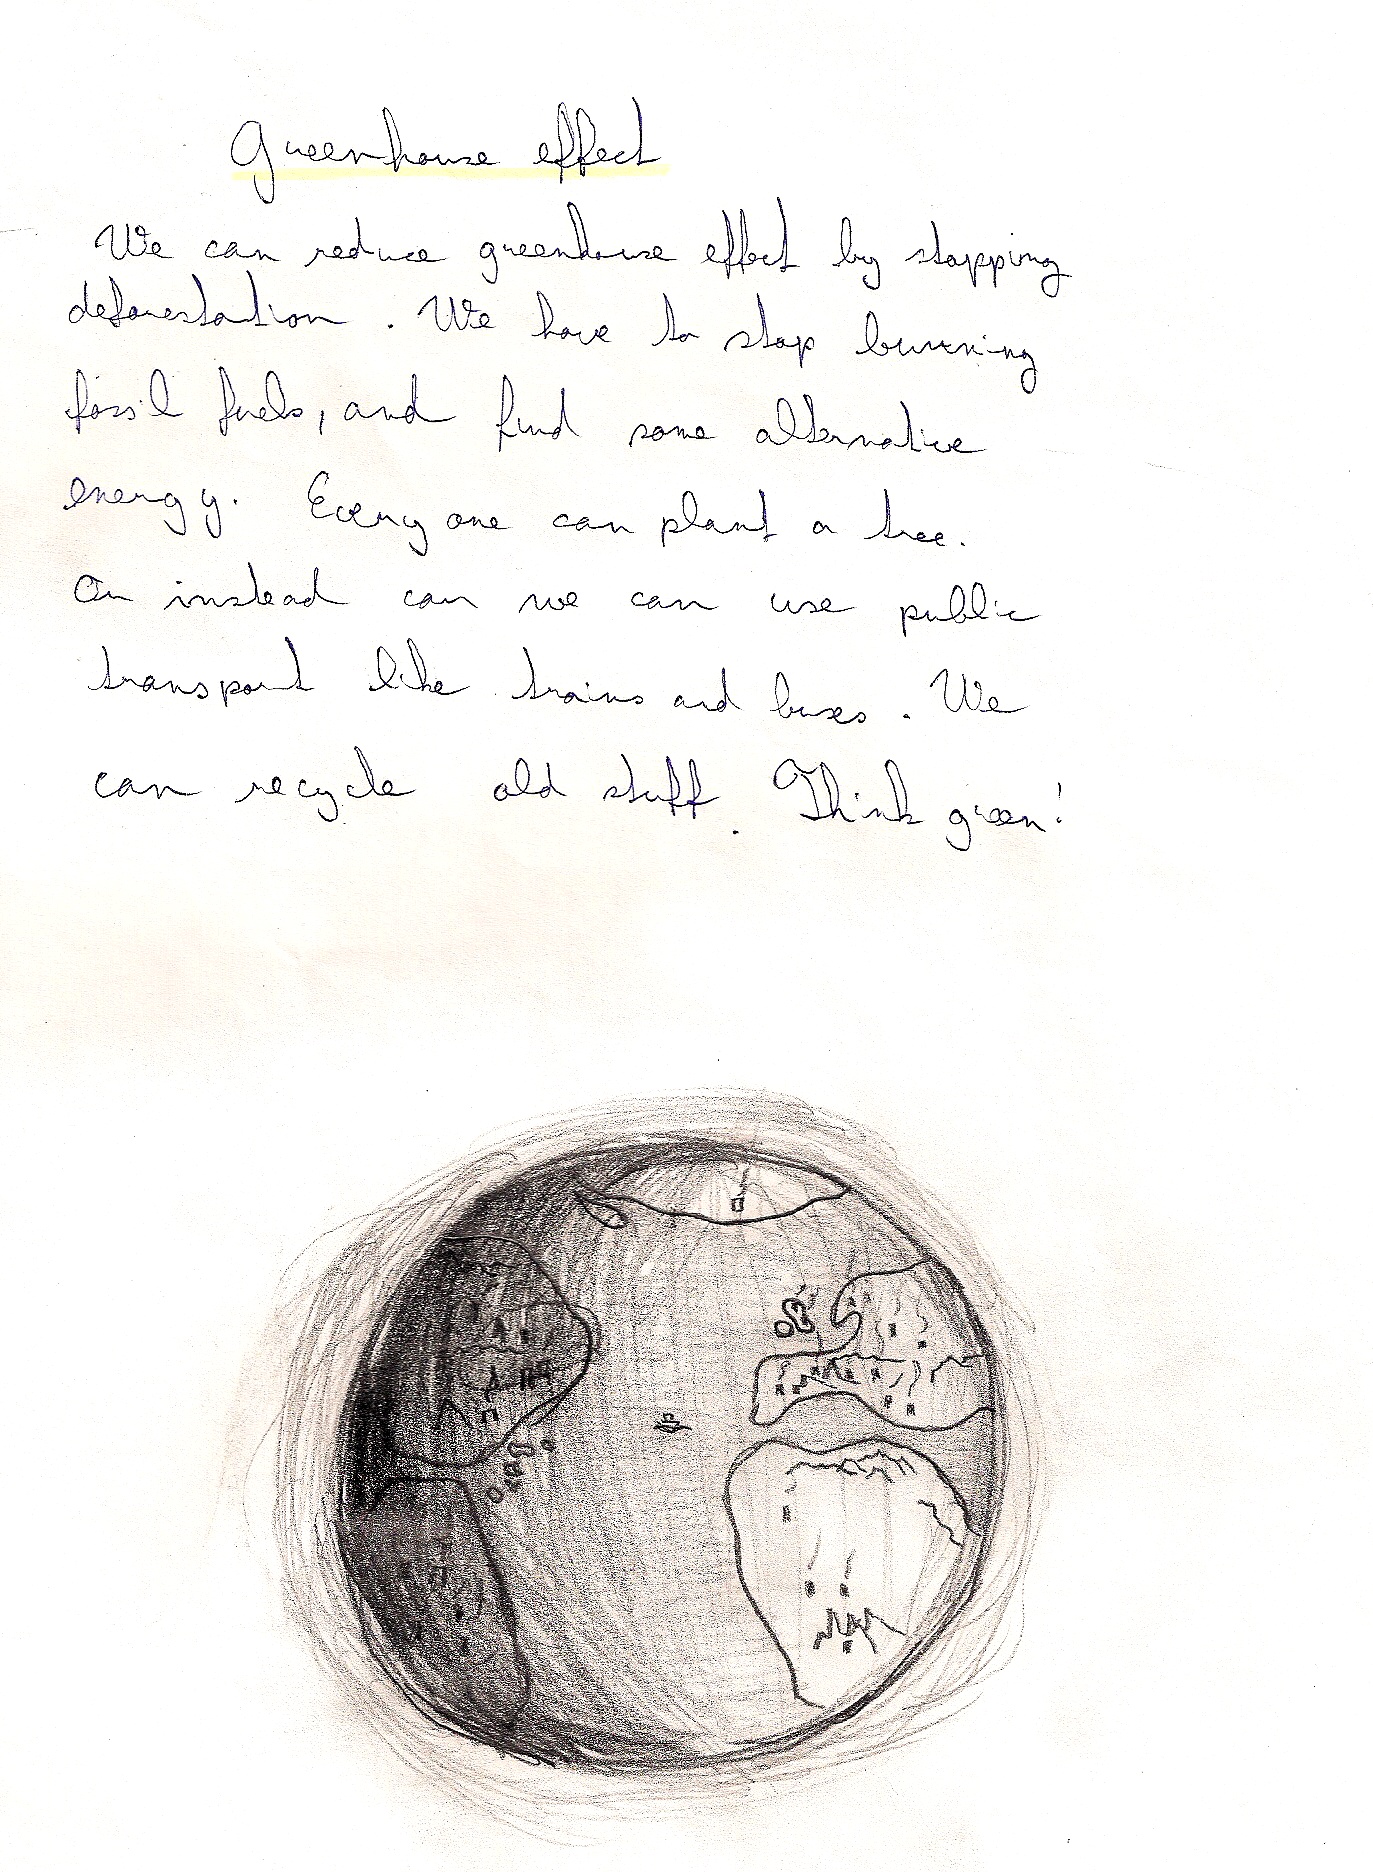 Greenhouse effect
We can reduce greenhouse effect by stopping
deforestation. We have to stop burning
fossil fuels, and find some alternative
energy. Every one can plant a tree.
On instead car we can use public
transport like trains and buses. We
can recycle old stuff. Think green!